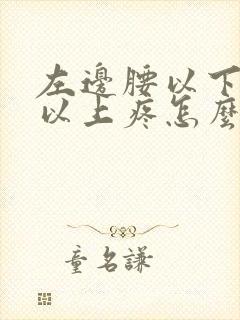 左邊腰以下
以上疼怎麼
童名謙